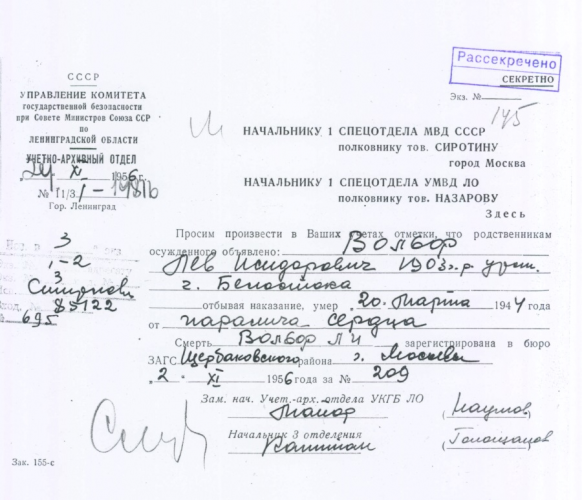 Рассекречено
СЕКРЕТНО
Экз. №
145
СССР
УПРАВЛЕНИЕ КОМИТЕТА
государственной безопасности
при Совете Министров Союза ССР
по
ЛЕНИНГРАДСКОЙ ОБЛАСТИ
УЧЕТНО-АРХИВНЫЙ ОТДЕЛ
XI 1956 г.
№ 11/3
Гор. Ленинград
НАЧАЛЬНИКУ 1 СПЕЦОТДЕЛА МВД СССР
полковнику тов. СИРОТИНУ
город Москва
НАЧАЛЬНИКУ 1 СПЕЦОТДЕЛА УМВД ЛО
полковнику тов. НАЗАРОВУ
Здесь
3
1-2
3
Смирнова
85122
695
Просим произвести в Ваших учетах отметки, что родственникам
осужденного объявлено: Волбор
Лев Исидорович 1903 г.р. урож.
г. Белостока
отбывая наказание, умер 20 марта 1944 года
от паралича сердца
Смерть Волбор Л И зарегистрирована в бюро
ЗАГС Щербаковского района г. Москвы
„2" XI 1956 года за № 209
Зам. нач. Учет.-арх. отдела УКГБ ЛО
Майор (Наумов)
Начальник 3 отделения
Капитан
Зак. 155-с